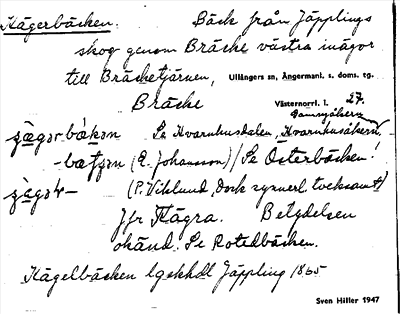 Kägerbäcken. Bäck från Jäpplings
skog genom Bräcke västra inägor
till Bräcketjärnen, Ullångers sn, Ångermanl. s. doms. tg.
Bräcke Västernorrl. l. 27.
Se Kvarnhusdalen, Kvarnhusåkern,
(E. Johansson) // Se Österbäcken!
(P. Viklund, dock synnerl. tveksamt)
Jfr Kägra. Betydelsen
okänd. Se Rotedbäcken.
Kägelbäcken lgekhdl Jäppling 1865
Sven Hiller 1947